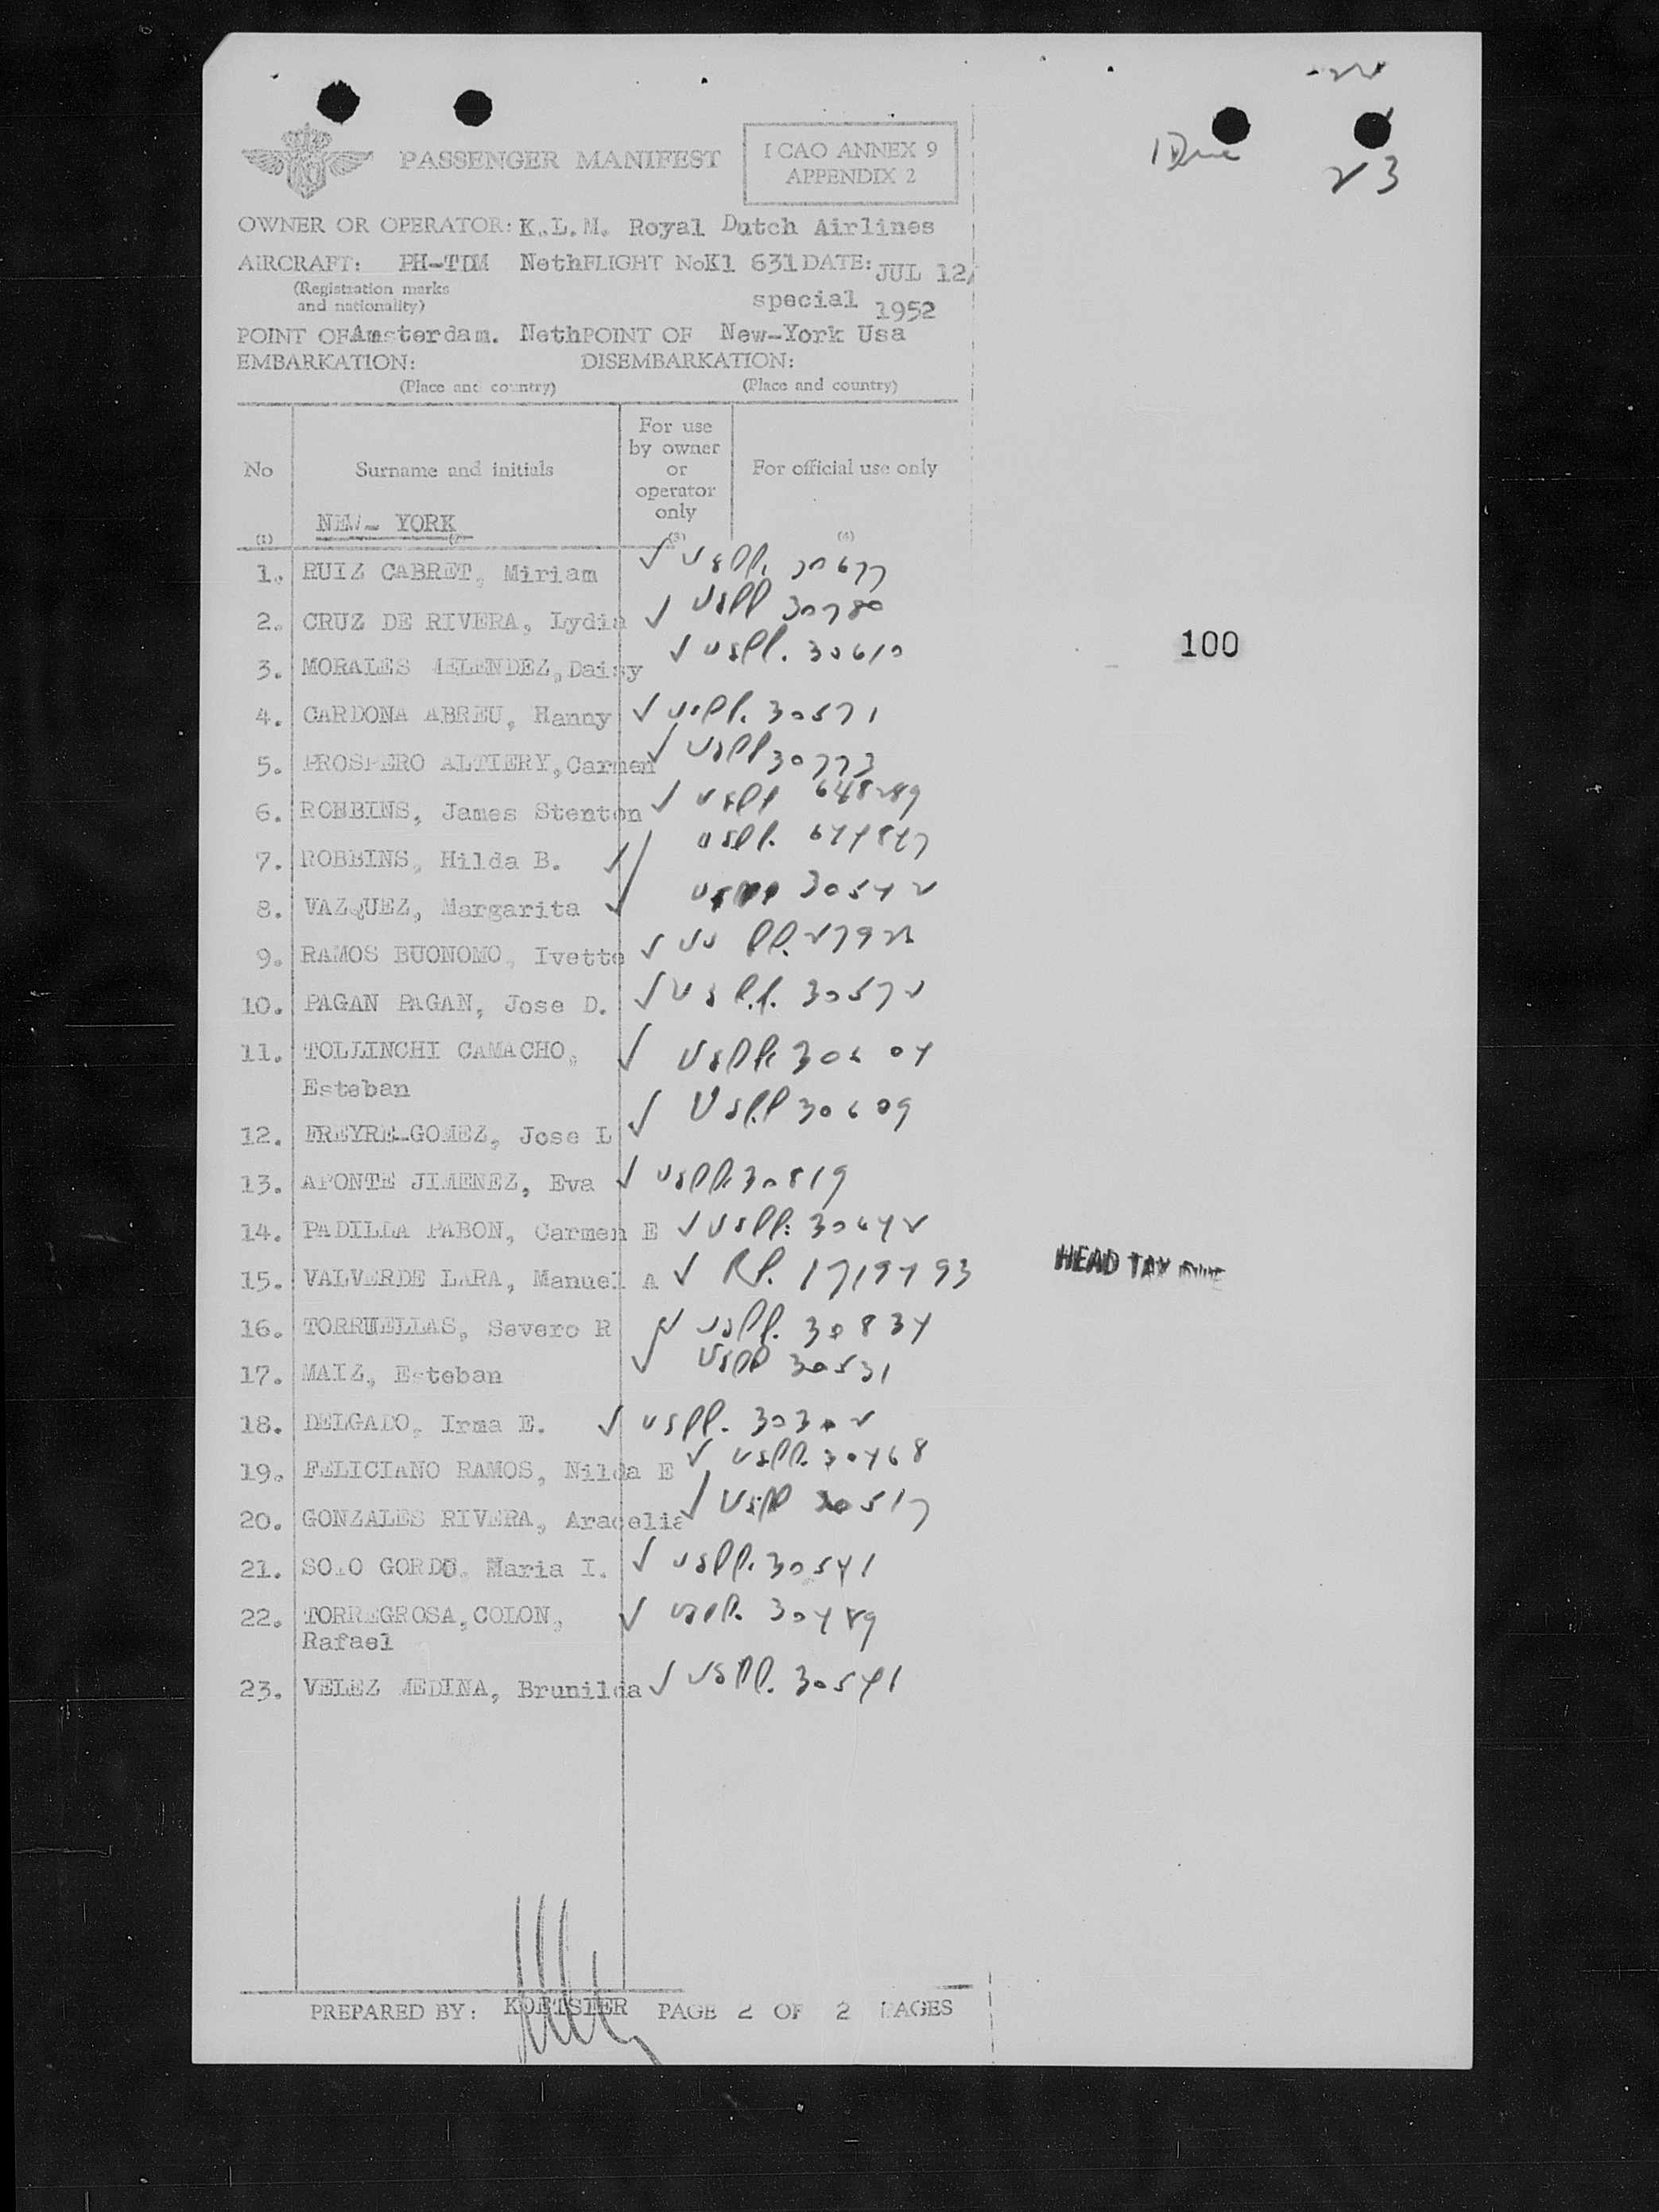 1 Due
23
PASSENGER MANIFEST
I CAO ANNEX 9
APPENDIX 2
OWNER OR OPERATOR: K.L.M. Royal Dutch Airlines
AIRCRAFT: PH-TDM Neth FLIGHT No Kl 631 DATE: JUL 12/
(Registration marks
and nationality)
special 1952
POINT OF Amsterdam. Neth POINT OF New-York Usa
EMBARKATION: DISEMBARKATION:
(Place and country) (Place and country)
No
Surname and initials
For use
by owner
or
operator
only
For official use only
NEW- YORK
(1) (3) (4)
1. RUIZ CABRET, Miriam ✓ USPP. 30677
2. CRUZ DE RIVERA, Lydia ✓ USPP 30780
3. MORALES MELENDEZ, Daisy ✓ USPP. 30610
100
4. CARDONA ABREU, Hanny ✓ USPP. 30571
5. PROSPERO ALTIERY, Carmen ✓ USPP 30773
6. ROBBINS, James Stenton ✓ USPP 648289
7. ROBBINS, Hilda B. ✓ USPP. 644847
8. VAZQUEZ, Margarita ✓ USPP 30542
9. RAMOS BUONOMO, Ivette ✓ US PP.
10. PAGAN PAGAN, Jose D. ✓ USPP. 30572
11. TOLLINCHI CAMACHO, ✓ USPP. 30604
Esteban
12. FREYRE-GOMEZ, Jose L ✓ USPP 30609
13. APONTE JIMENEZ, Eva ✓ USPP. 30819
14. PADILLA PABON, Carmen E ✓ USPP: 30642
15. VALVERDE LARA, Manuel A ✓ RP. 1719493 HEAD TAX DUE
16. TORRUELLAS, Severo R ✓ USPP. 30834
17. MAIZ, Esteban ✓ USPP 30531
18. DELGADO, Irma E. ✓ USPP. 30302
19. FELICIANO RAMOS, Nilda E ✓ USPP. 30468
20. GONZALES RIVERA, Aracelia ✓ USPP 30517
21. SOTO GORDO, Maria I. ✓ USPP. 30541
22. TORREGROSA, COLON, ✓ USPP. 30489
Rafael
23. VELEZ MEDINA, Brunilda ✓ USPP. 30541
PREPARED BY: PAGE 2 OF 2 PAGES